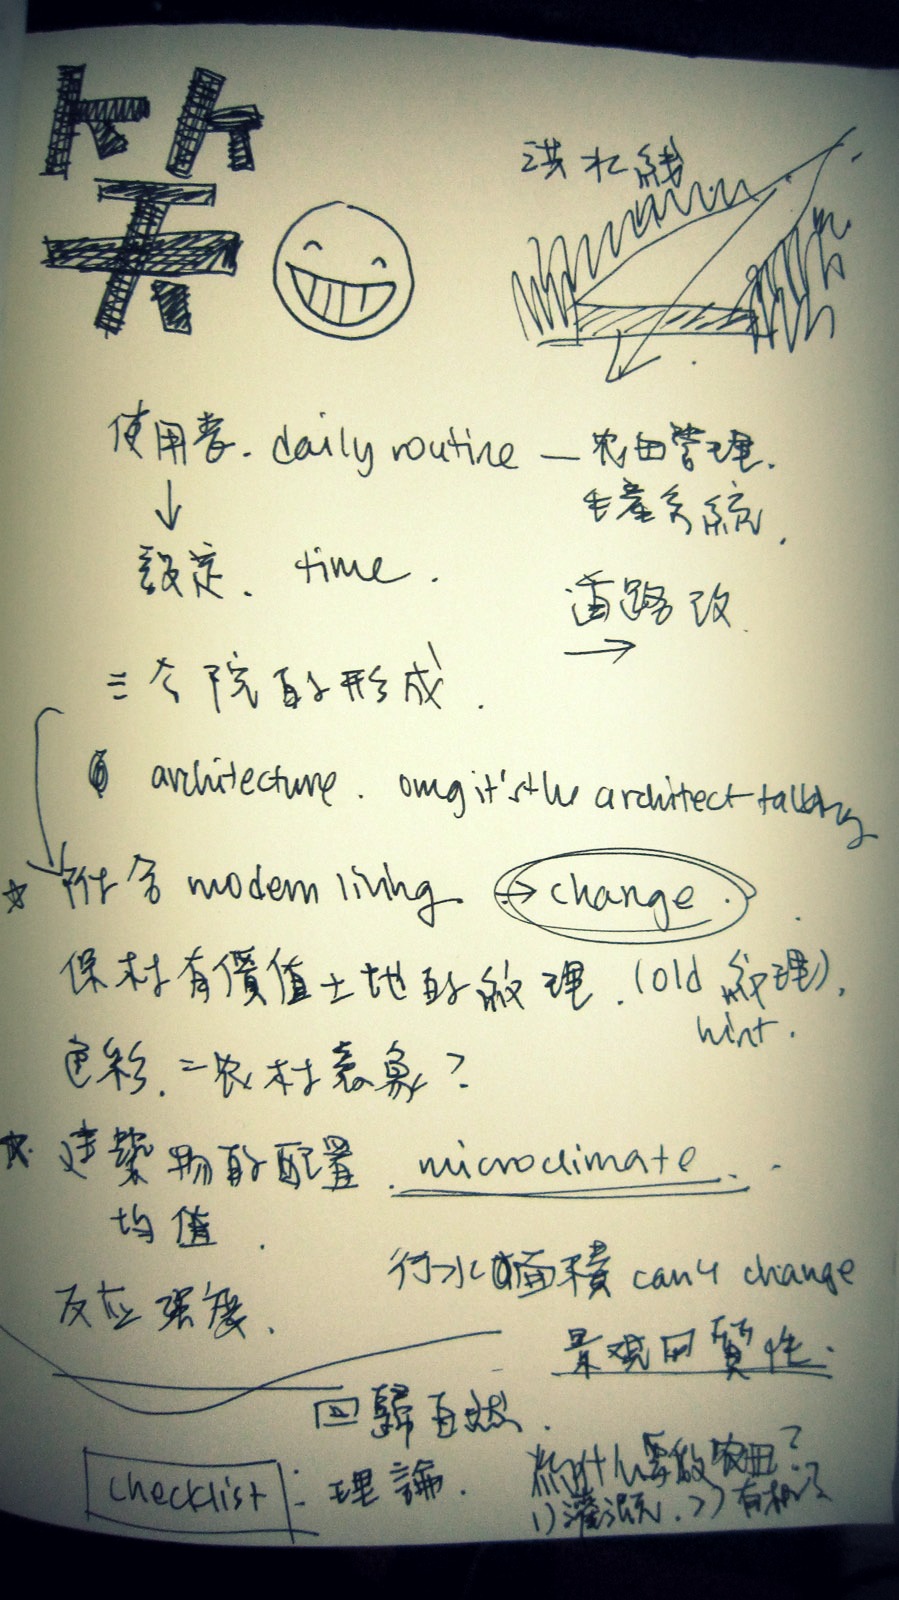 笑
洪水线
使用者. daily routine — 农田管理.
生產系統.
設定. time.
道路改
三个院的形成.
architecture. omg it's the architect talking
附合 modern living. → change.
保村有價值土地的紋理. (old 紋理).
hint.
色彩. = 农村意象?
建築物的配置. microclimate.
均值.
行水面積 can't change
反应强度.
景观同質性.
回歸自然.
checklist : 理論.
為什么要做农田?
1) 灌溉. 2) 有机